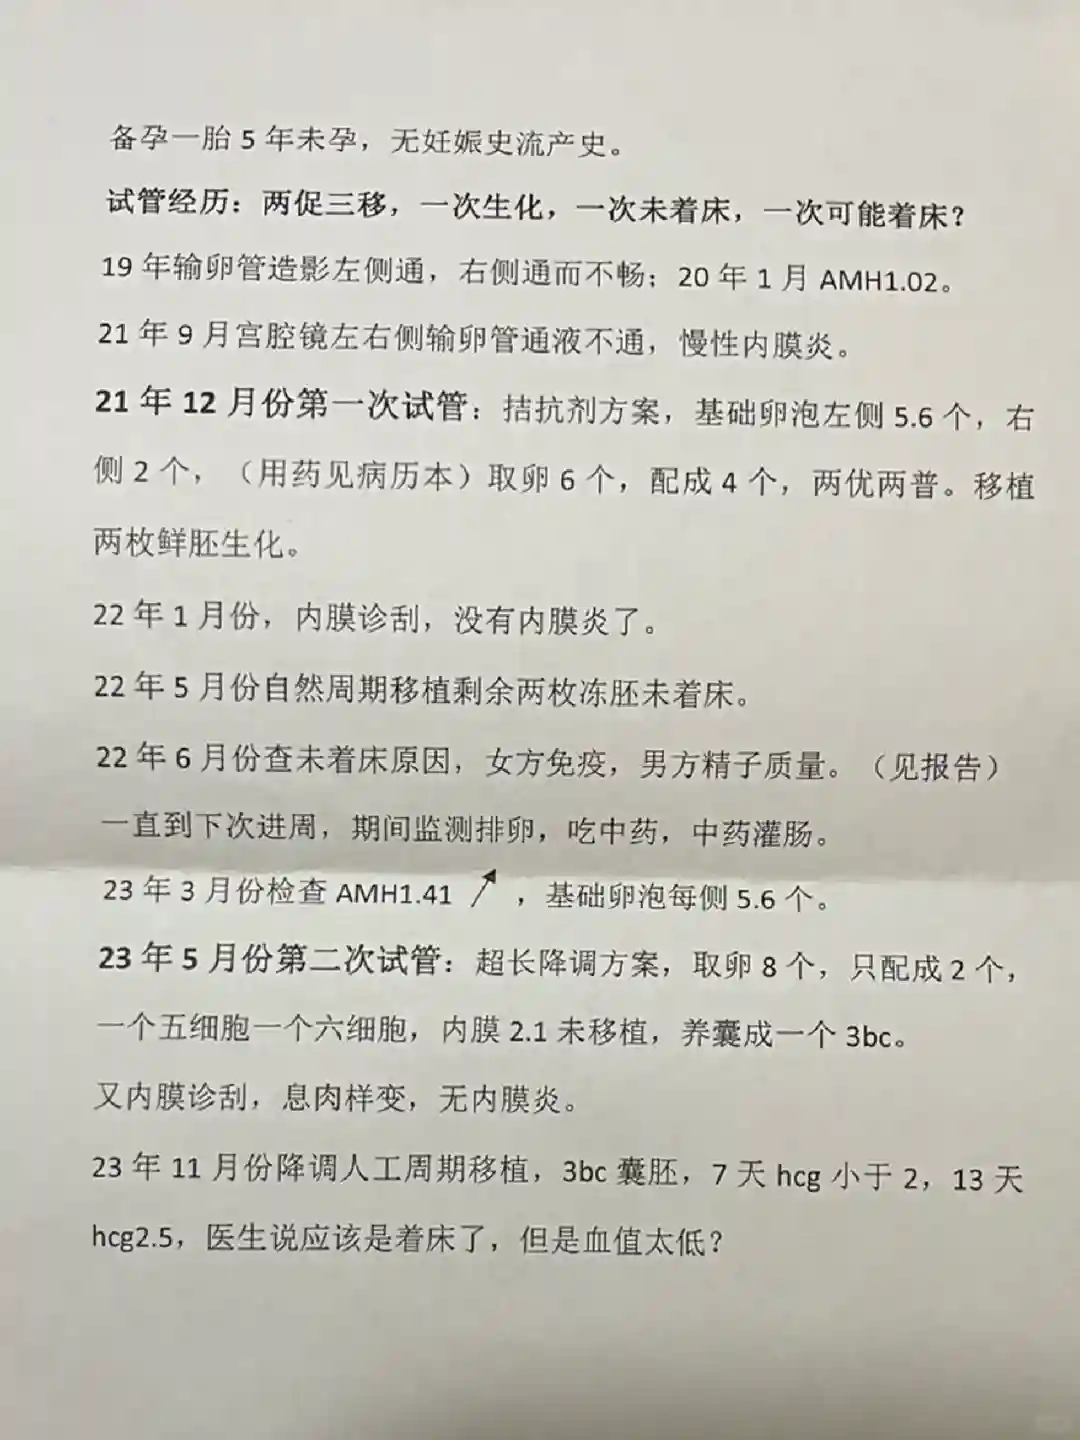 备孕一胎 5 年未孕，无妊娠史流产史。
试管经历：两促三移，一次生化，一次未着床，一次可能着床？
19 年输卵管造影左侧通，右侧通而不畅；20 年 1 月 AMH1.02。
21 年 9 月宫腔镜左右侧输卵管通液不通，慢性内膜炎。
21 年 12 月份第一次试管：拮抗剂方案，基础卵泡左侧 5.6 个，右
侧 2 个，（用药见病历本）取卵 6 个，配成 4 个，两优两普。移植
两枚鲜胚生化。
22 年 1 月份，内膜诊刮，没有内膜炎了。
22 年 5 月份自然周期移植剩余两枚冻胚未着床。
22 年 6 月份查未着床原因，女方免疫，男方精子质量。（见报告）
一直到下次进周，期间监测排卵，吃中药，中药灌肠。
23 年 3 月份检查 AMH1.41 ↗ ，基础卵泡每侧 5.6 个。
23 年 5 月份第二次试管：超长降调方案，取卵 8 个，只配成 2 个，
一个五细胞一个六细胞，内膜 2.1 未移植，养囊成一个 3bc。
又内膜诊刮，息肉样变，无内膜炎。
23 年 11 月份降调人工周期移植，3bc 囊胚，7 天 hcg 小于 2，13 天
hcg2.5，医生说应该是着床了，但是血值太低？